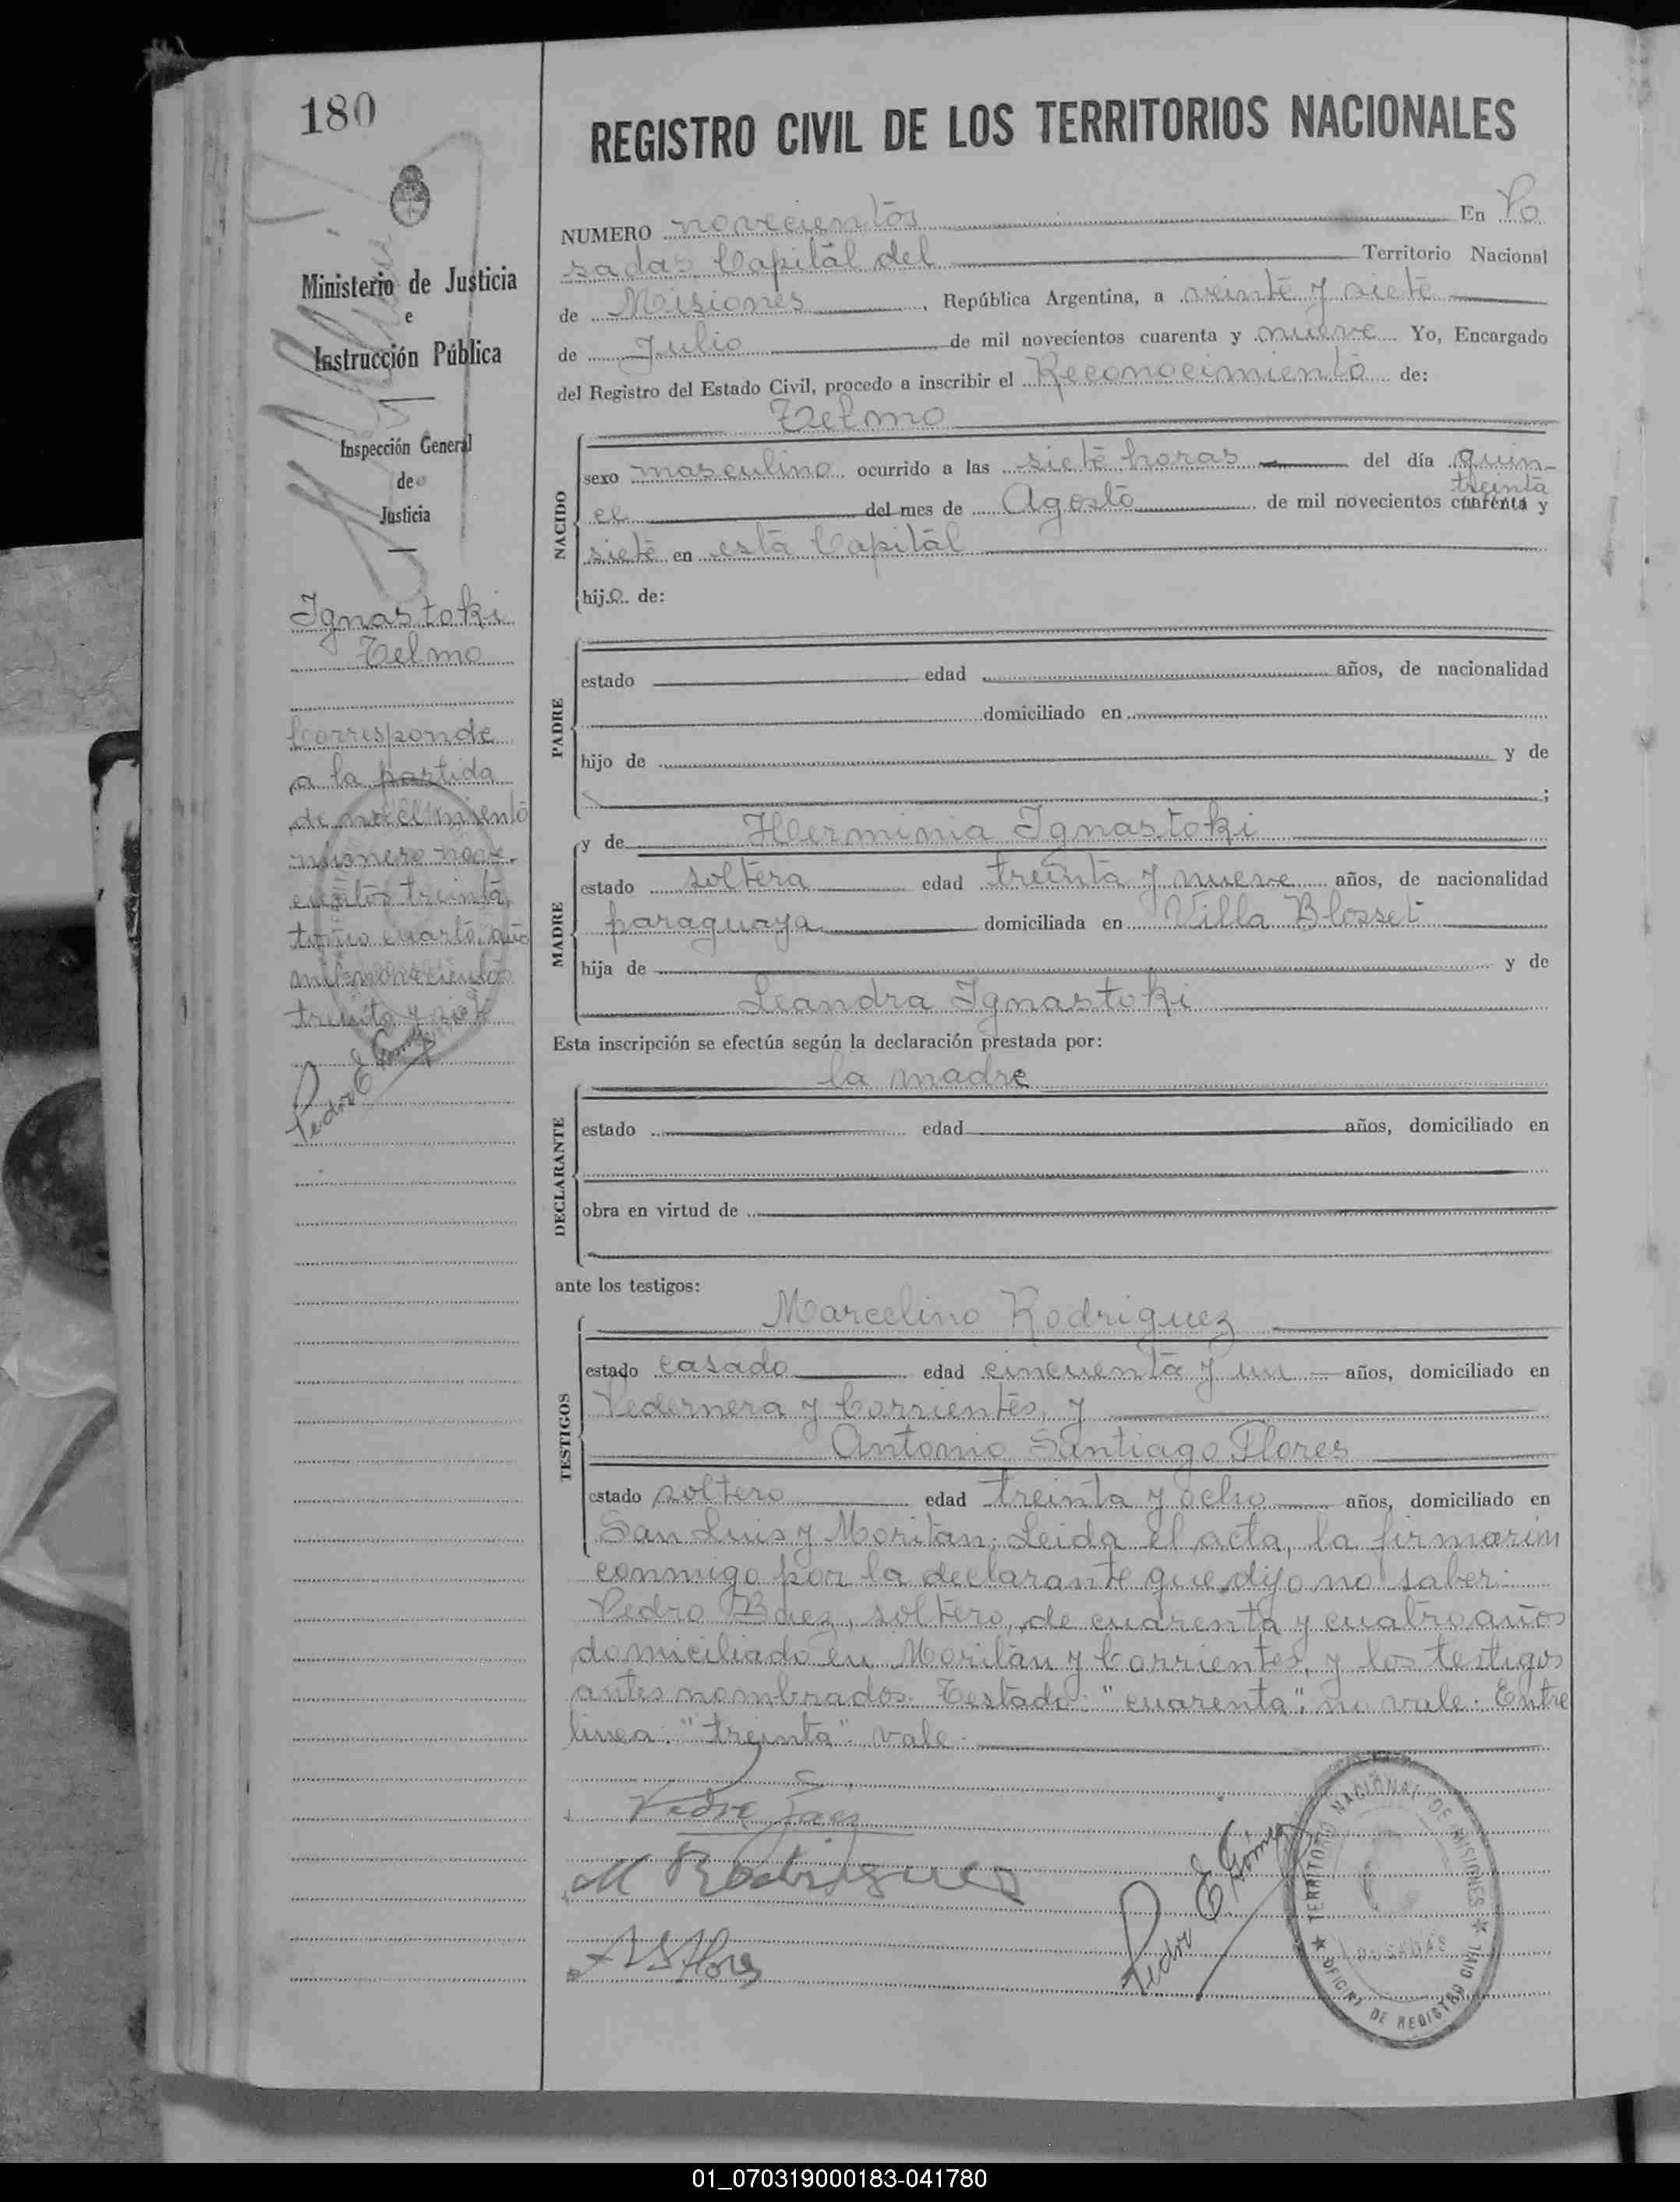 180
Ministerio de Justicia
e
Instrucción Pública
Inspección General
de
Justicia
Ignastoki
Telmo
Corresponde
a la partida
de nacimiento
número nove-
cientos treinta,
tomo cuarto, año
mil novecientos
treinta y siete
Pedro E Gómez
REGISTRO CIVIL DE LOS TERRITORIOS NACIONALES
NUMERO novecientos En Po
sadas Capital del Territorio Nacional
de Misiones, República Argentina, a veinte y siete
de Julio de mil novecientos cuarenta y nueve Yo, Encargado
del Registro del Estado Civil, procedo a inscribir el Reconocimiento de:
Telmo
NACIDO
sexo masculino ocurrido a las siete horas del día quin-
treinta
ce del mes de Agosto de mil novecientos cuarenta y
siete en esta Capital
hijo de:
PADRE
estado edad años, de nacionalidad
domiciliado en
hijo de y de
;
MADRE
y de Herminia Ignastoki
estado soltera edad treinta y nueve años, de nacionalidad
paraguaya domiciliada en Villa Blosset
hija de y de
Leandra Ignastoki
Esta inscripción se efectúa según la declaración prestada por:
la madre
DECLARANTE
estado edad años, domiciliado en
obra en virtud de
ante los testigos:
Marcelino Rodriguez
TESTIGOS
estado casado edad cincuenta y un años, domiciliado en
Pedernera y Corrientes, y
Antonio Santiago Flores
estado soltero edad treinta y ocho años, domiciliado en
San Luis y Moritan; Leida el acta, la firmarón
conmigo por la declarante que dijo no saber:
Pedro Báez, soltero, de cuarenta y cuatro años
domiciliado en Moritán y Corrientes, y los testigos
antes nombrados. Testado: "cuarenta", no vale. Entre
linea: "treinta" vale.
Pedro Báez
M Rodriguez
A S Flores
Pedro E Gómez
TERRITORIO NACIONAL DE MISIONES
POSADAS
OFICINA DE REGISTRO CIVIL
01_070319000183-041780